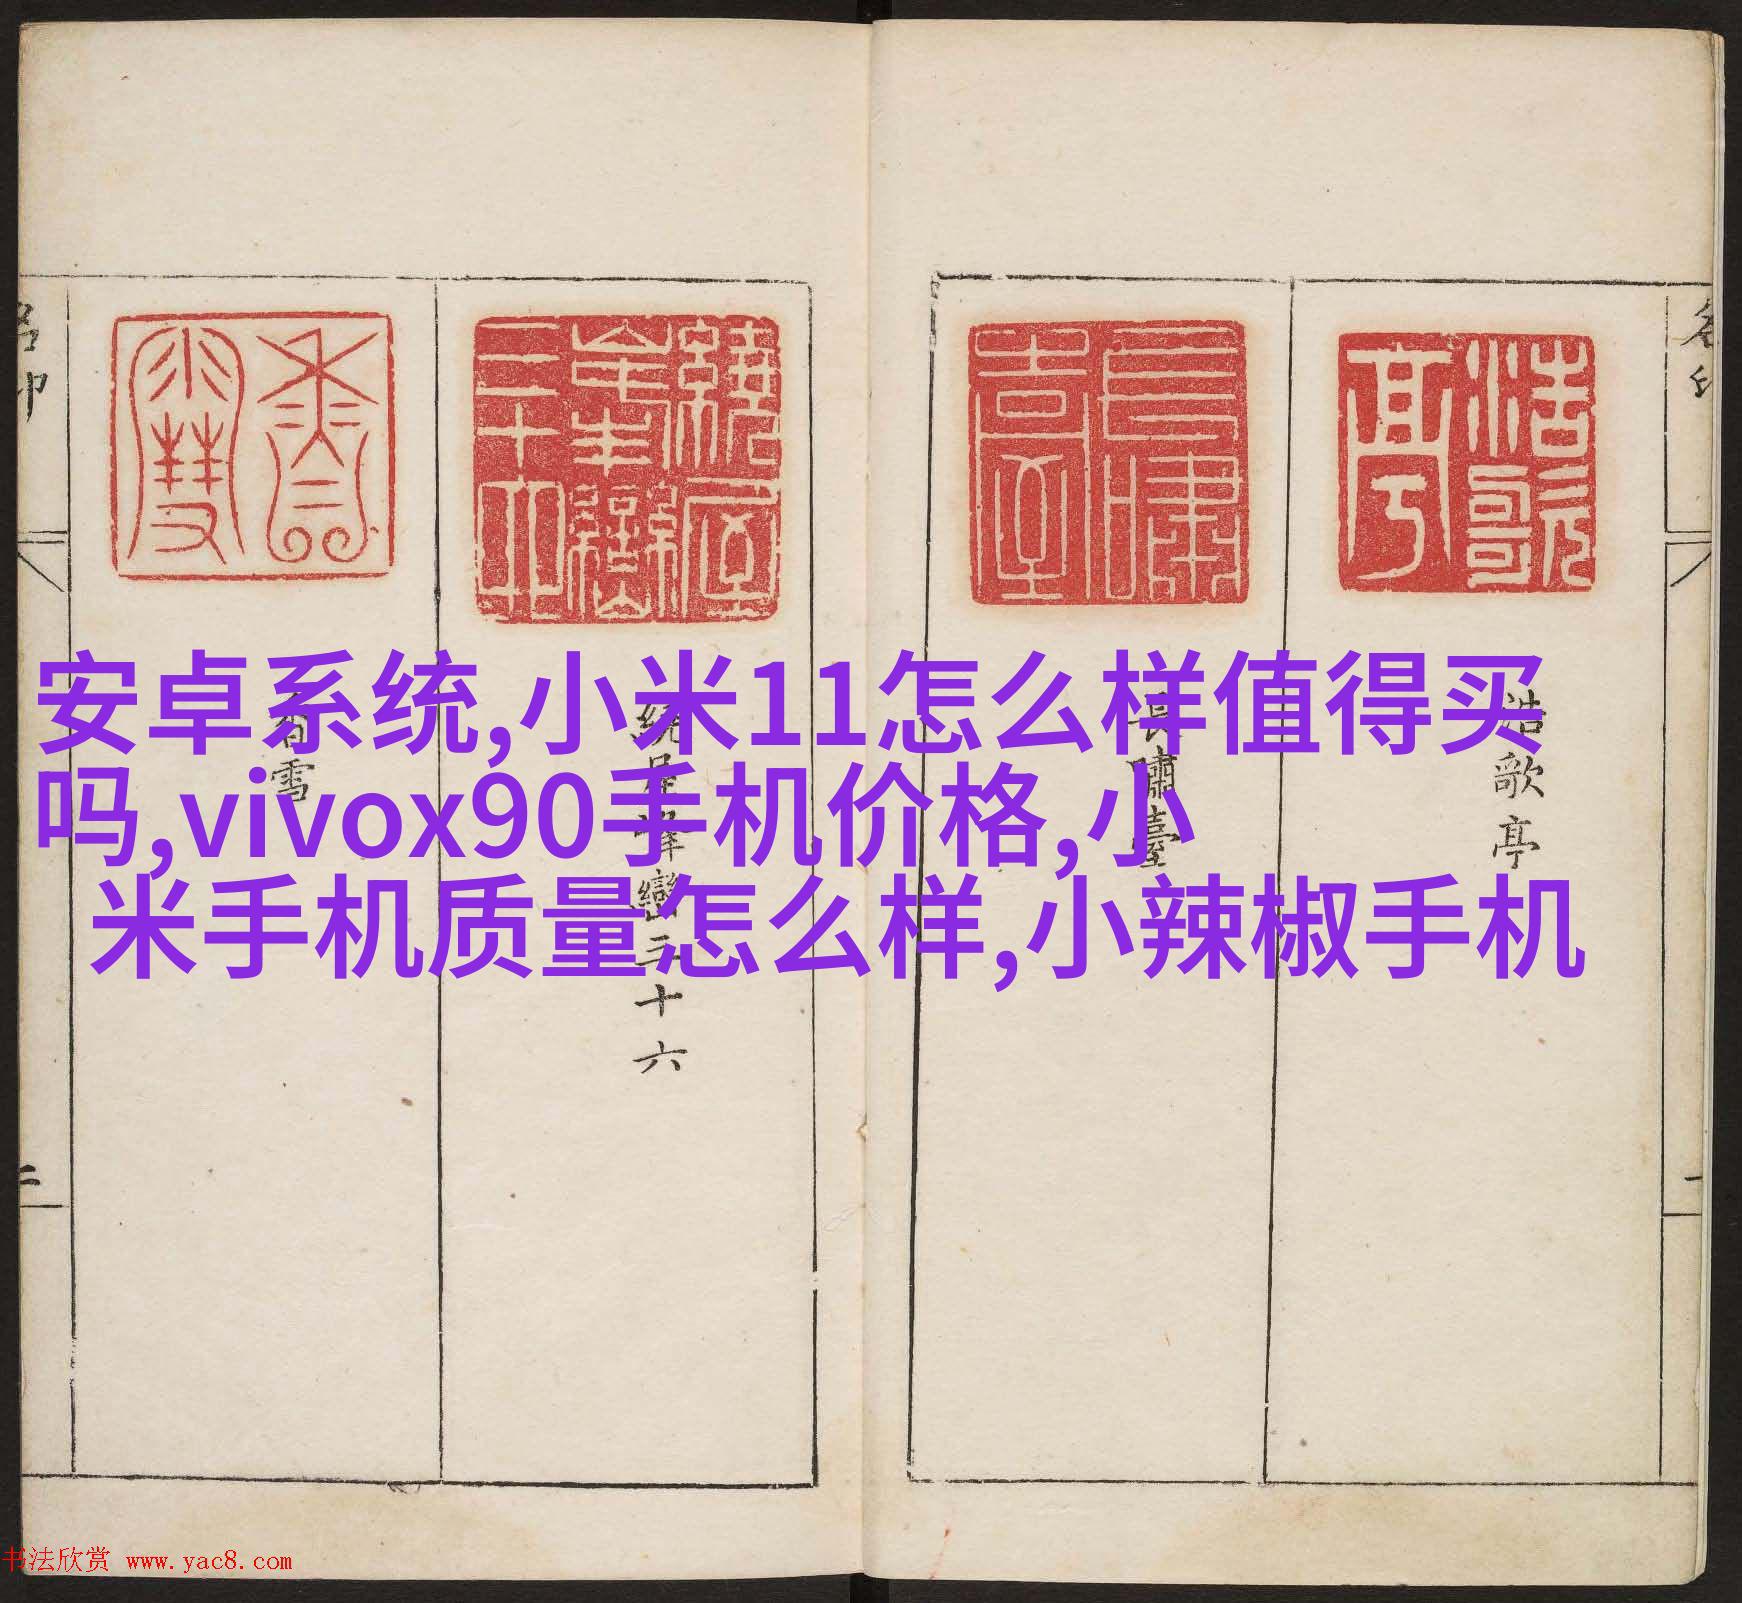 安卓系统,小米11怎么样值得买
吗,vivox90手机价格,小
米手机质量怎么样,小辣椒手机
浩歌亭
長嘯臺
繞屋峰巒三十六
香雪
浩歌亭
長嘯臺
二
一
书法欣赏 www.yac8.com